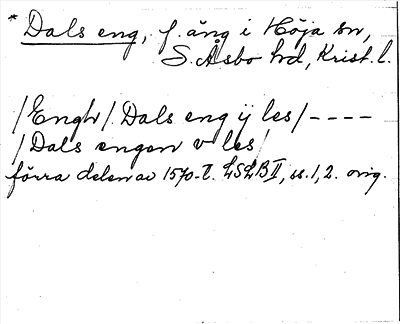 * Dals eng, f. äng i Höja sn,
S. Åsbo hd, Krist. l.
/Engh/ Dals eng ij les/ ----
/Dals engon v les/
förra delen av 1570-t. LSLB II, ss. 1, 2. orig.